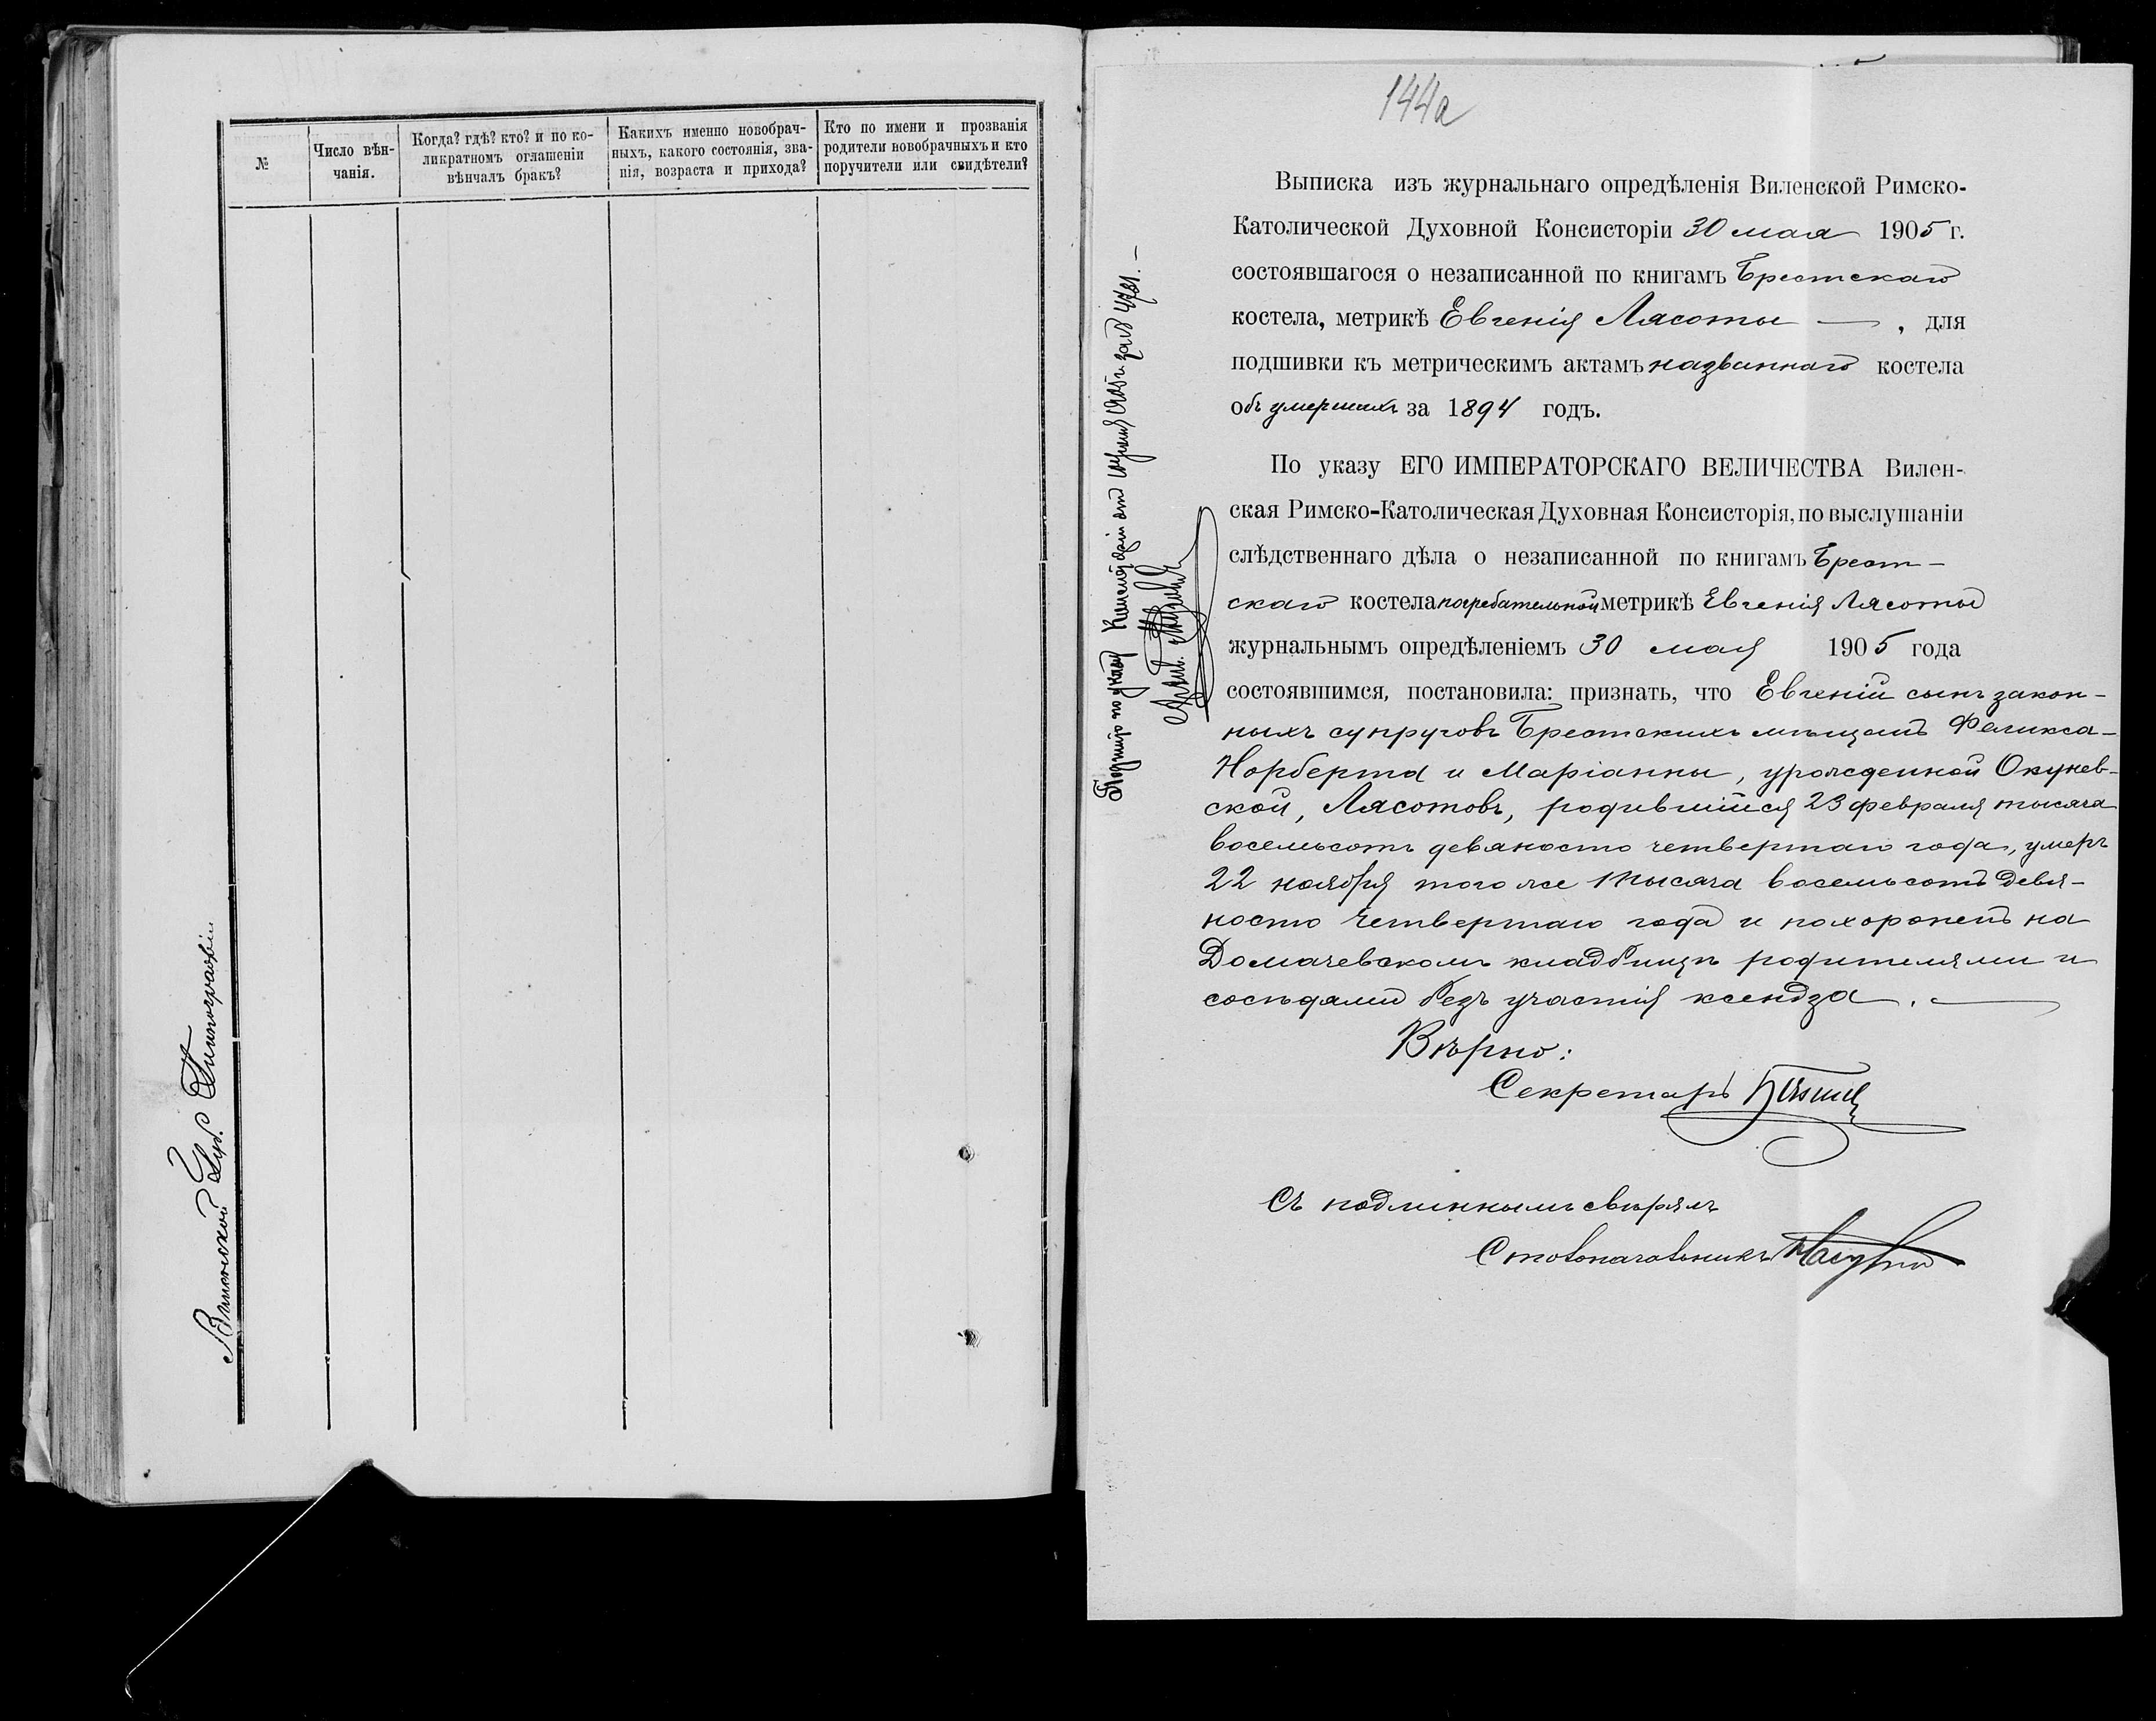 №
Число вѣн-
чанія.
Когда? гдѣ? кто? и по ко-
ликратномъ оглашеніи
вѣнчалъ бракъ?
Какихъ именно новобрач-
ныхъ, какого состоянія, зва-
нія, возраста и прихода?
Кто по имени и прозванія
родители новобрачныхъ и кто
поручители или свидѣтели?
Виленской Губ. Типографіи
144а
Выписка изъ журнальнаго опредѣленія Виленской Римско-
Католической Духовной Консисторіи 30 мая 1905 г.
состоявшагося о незаписанной по книгамъ Брестскаго
костела, метрикѣ Евгенія Лясоты — , для
подшивки къ метрическимъ актамъ названнаго костела
объ умершихъ за 1894 годъ.
По указу ЕГО ИМПЕРАТОРСКАГО ВЕЛИЧЕСТВА Вилен-
ская Римско-Католическая Духовная Консисторія, по выслушаніи
слѣдственнаго дѣла о незаписанной по книгамъ Брест-
скаго костела погребательной метрикѣ Евгенія Лясоты
журнальнымъ опредѣленіемъ 30 мая 1905 года
состоявшимся, постановила: признать, что Евгеній сынъ закон-
ныхъ супруговъ Брестскихъ мѣщанъ Феликса-
Норберта и Маріанны, урожденной Окунев-
ской, Лясотовъ, родившійся 23 февраля тысяча
восемьсотъ девяносто четвертаго года, умеръ
22 ноября того же тысяча восемьсотъ девя-
носто четвертаго года и похороненъ на
Домачевскомъ кладбищѣ родителями и
сосѣдями безъ участія ксендза. —
Вѣрно:
Секретарь
Съ подлиннымъ свѣрялъ
Столоначальникъ
Подшито по указу Консисторіи отъ 1905 г. за № 4781. —